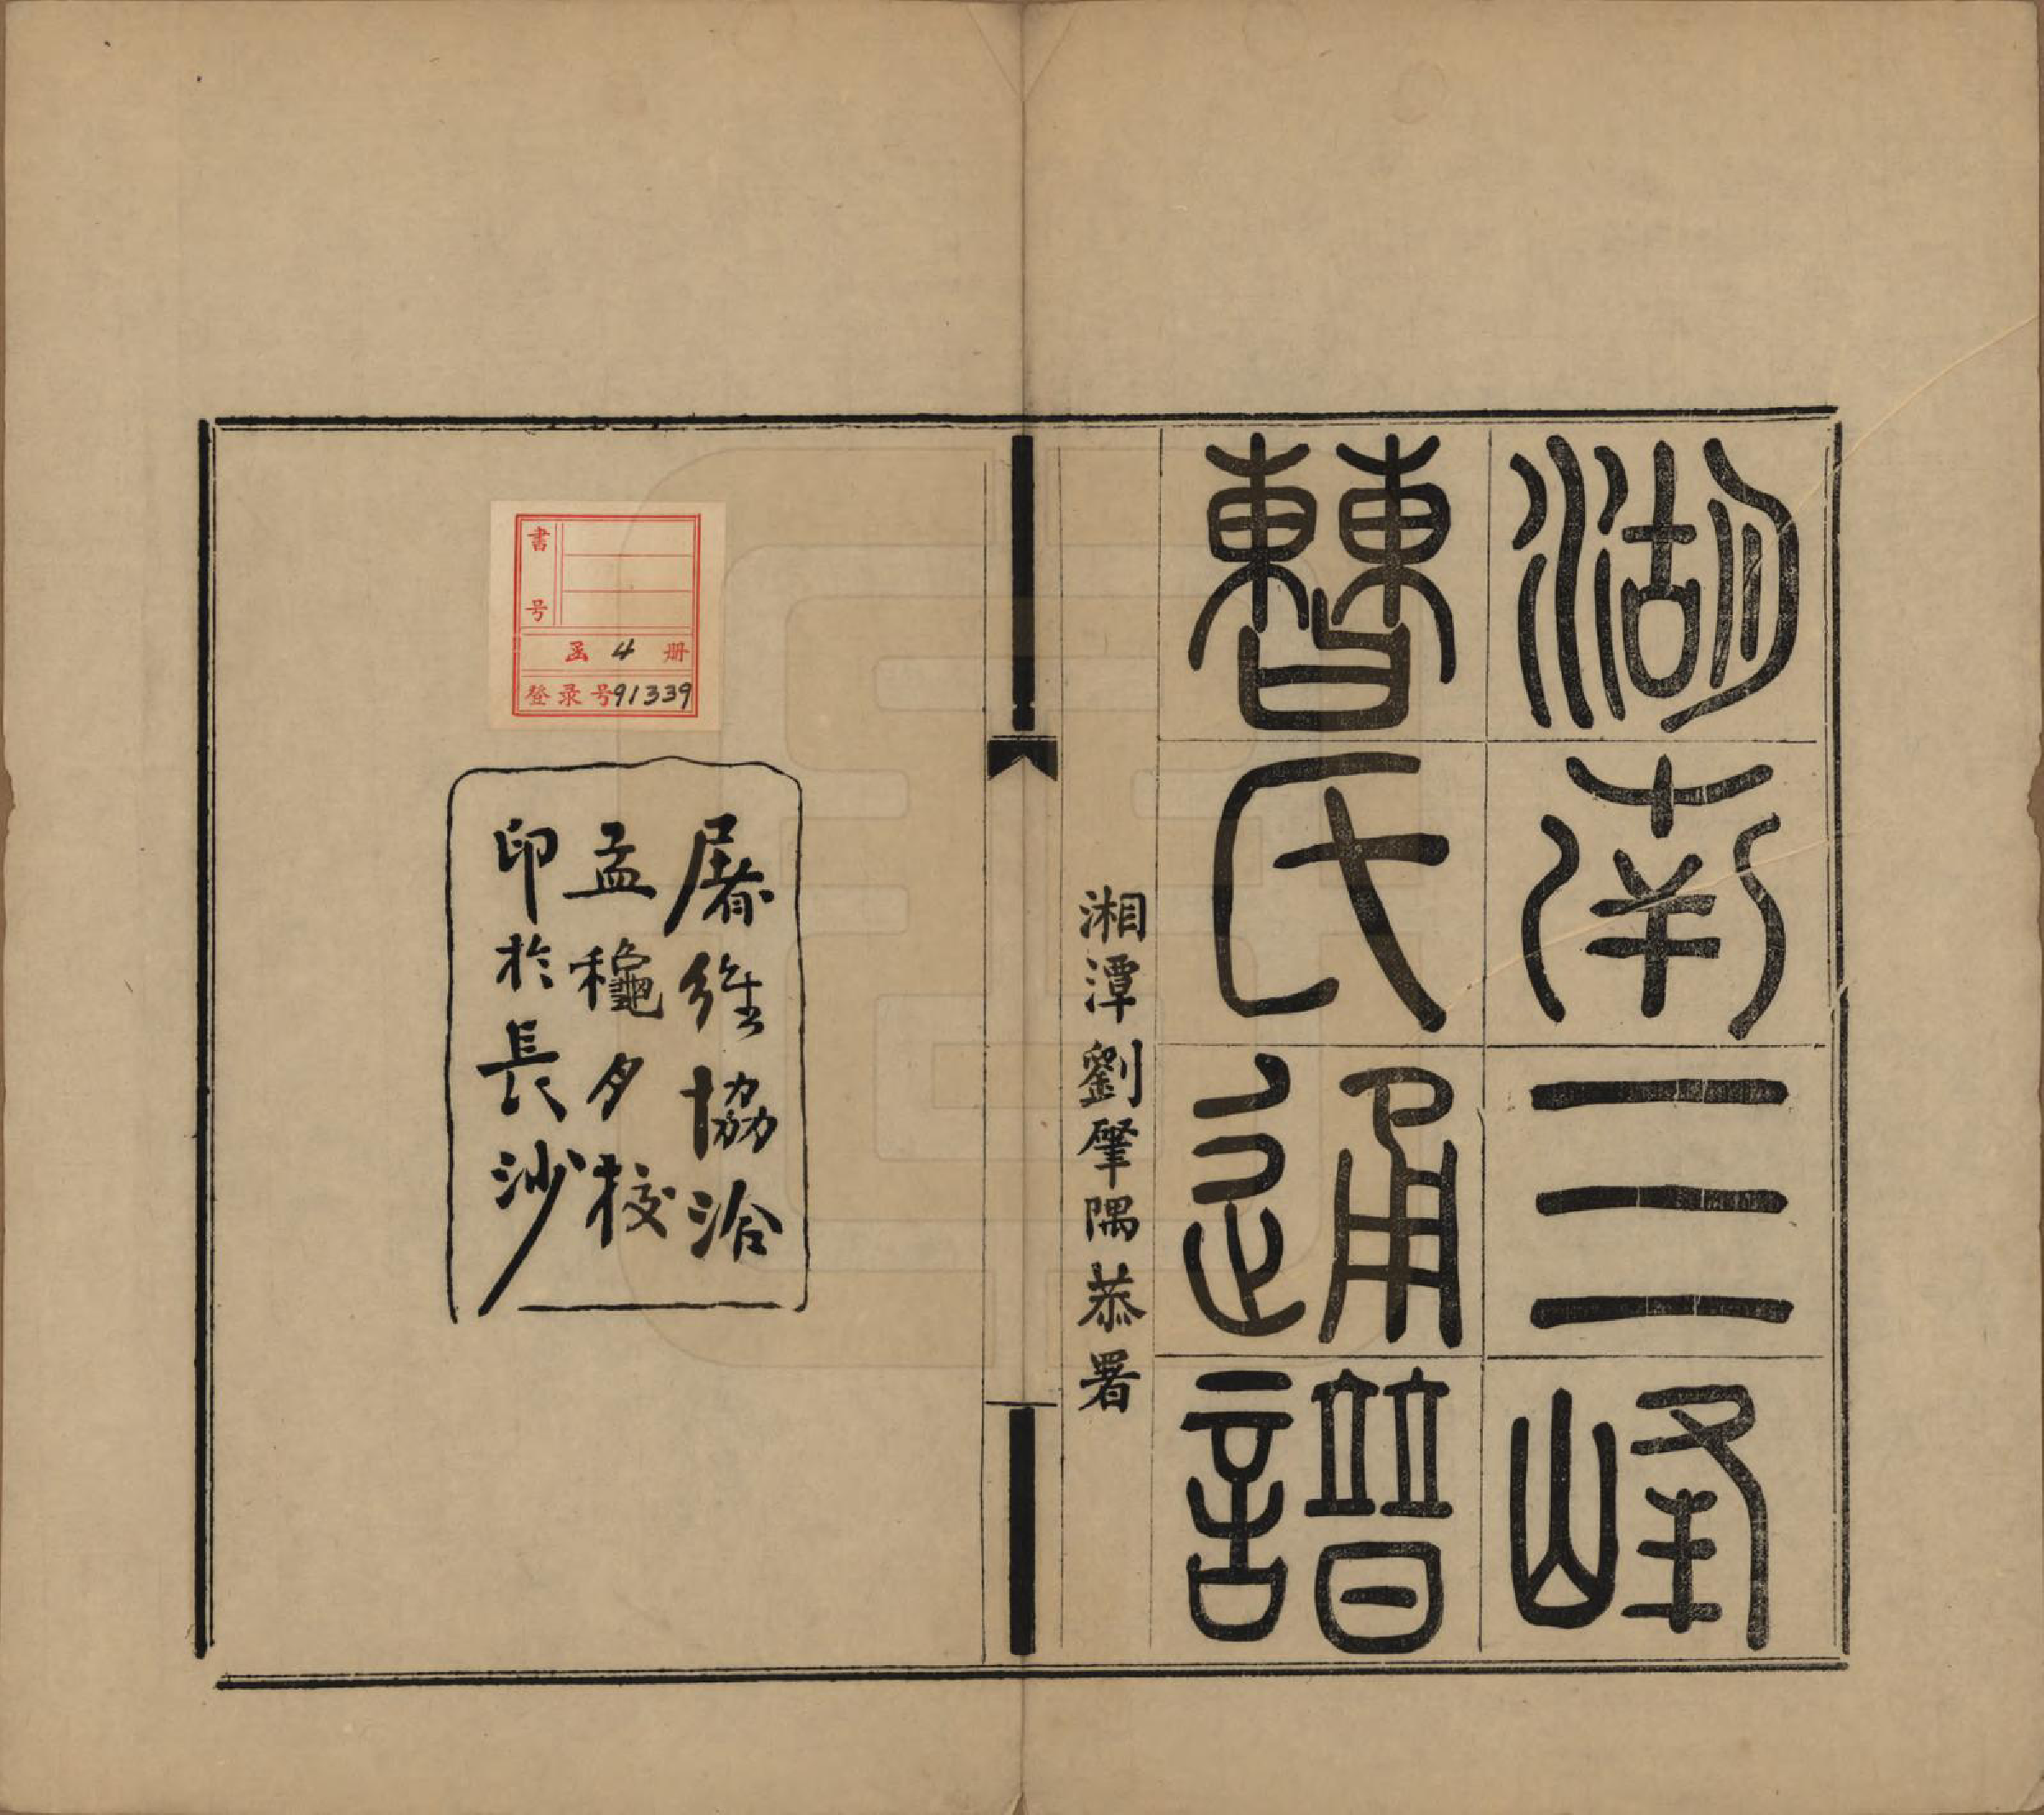 湖南三峰
曹氏通譜
湘潭劉肇隅恭署
屠維協洽
孟龝夕校
印於長沙
書号
函 4 册
登录号91339